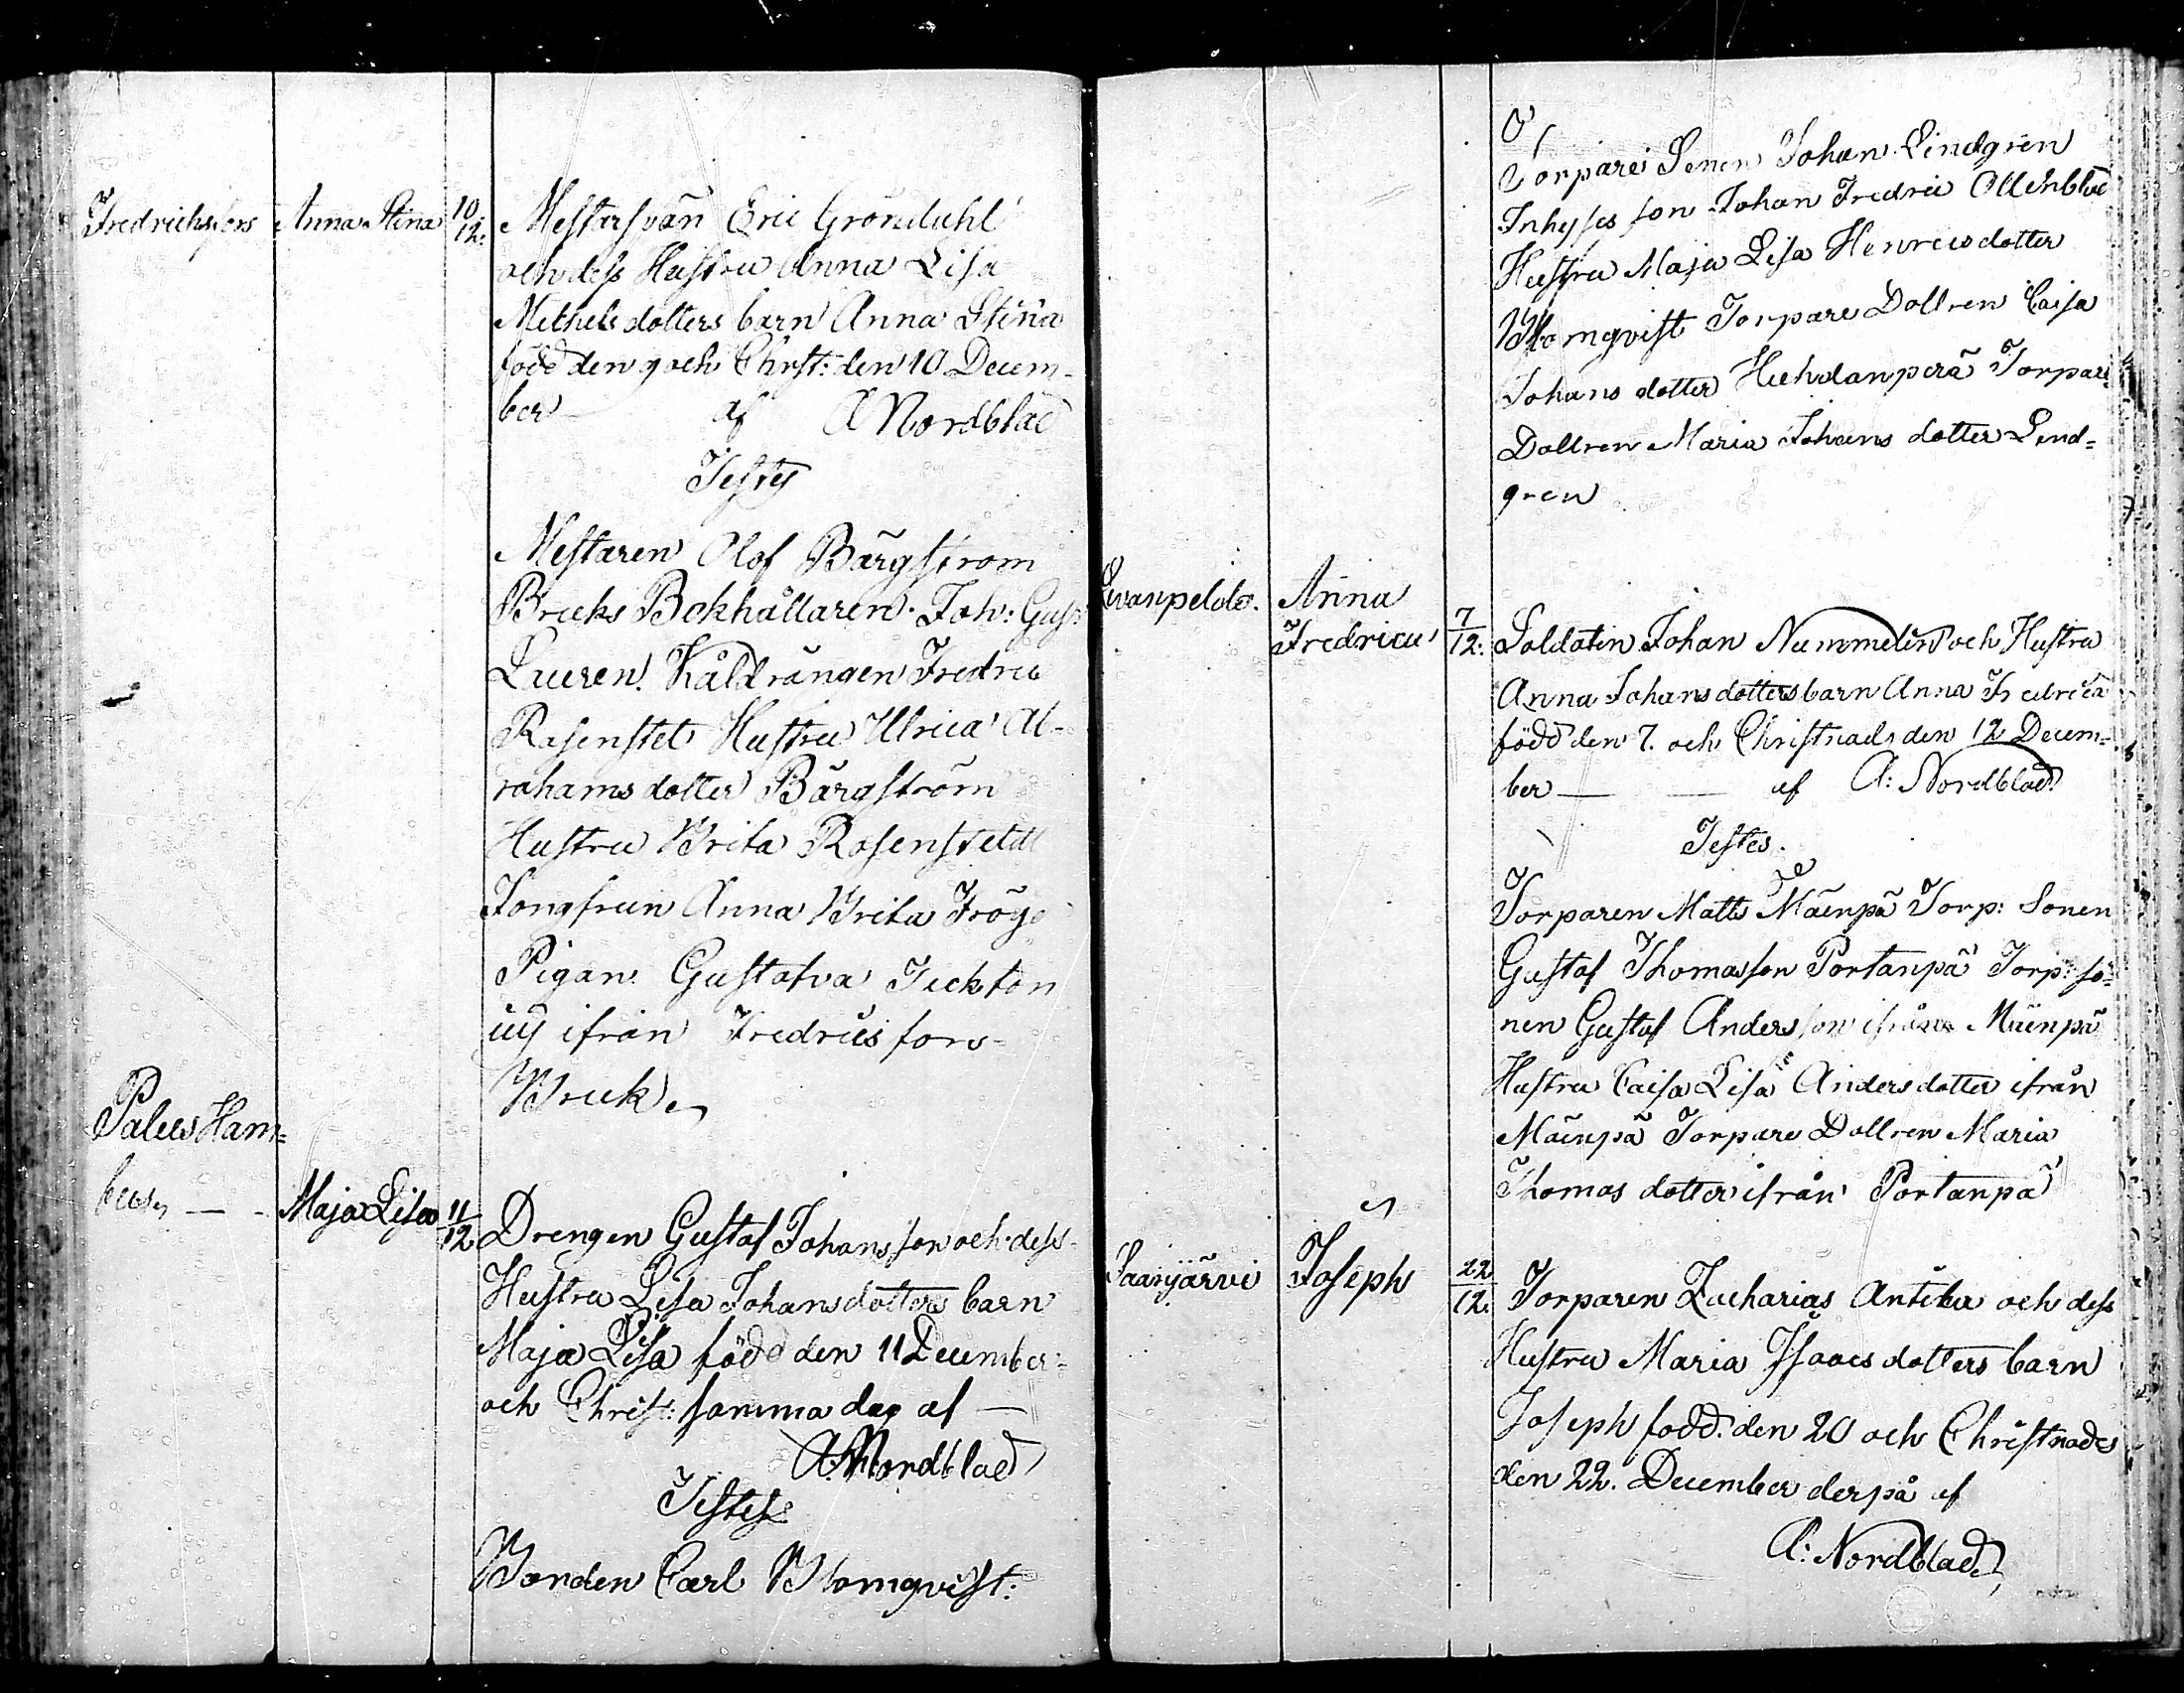 Fredrichsfors Anna Stina 10/12. Mestarsvän Eric Gröndahl
och dess Hustru Anna Lisa
Michelsdotters barn Anna Stina
född den 9 och Christ: den 10 Decem-
ber af A Nordblad
Testes
Mestaren Olof Bärgström
Bruks Bokhållaren Joh: Gust:
Lauren. Kåldrängen Fredric
Rosenstet Hustru Ulrica Ab-
rahams dotter Bärgström
Hustru Brita Rosenstedt
Jongfrun Anna Brita
Pigan Gustafva
ifrån Fredricsfors
Bruk
Palus Ham=
bus Maja Lisa 11/12 Drengen Gustaf Johansson och dess
Hustru Lisa Johansdotters barn
Maja Lisa född den 11 December
och Christ: samma dag af
A: Nordblad
Testes
Bonden Carl Blomqvist:
Torpare Sonen Johan Lindgren
Inhyses son Johan Fredric
Hustru Maja Lisa Henricsdotter
Blomqvist Torpare Dottren Caisa
Johans dotter Huhdanperä Torpare
Dottren Maria Johans dotter Lind=
gren
Anna
Fredrica 7/12. Soldaten Johan Nummelin och Hustru
Anna Johansdotters barn Anna Fredrica
född den 7. och Christnades den 12 Decem=
ber af A: Nordblad
Testes.
Torparen Matts Mäenpä Torp: Sonen
Gustaf Thomasson Portanpä Torp: so=
nen Gustaf Andersson ifrån Mäenpä
Hustru Caisa Lisa Andersdotter ifrån
Mäenpä Torpare Dottren Maria
Thomas dotter ifrån Portanpä
Saarijärvi Joseph 22/12. Torparen Zacharias Anttila och dess
Hustru Maria Isaacs dotters barn
Joseph född den 20 och Christnades
den 22. December derpå af
A: Nordblad